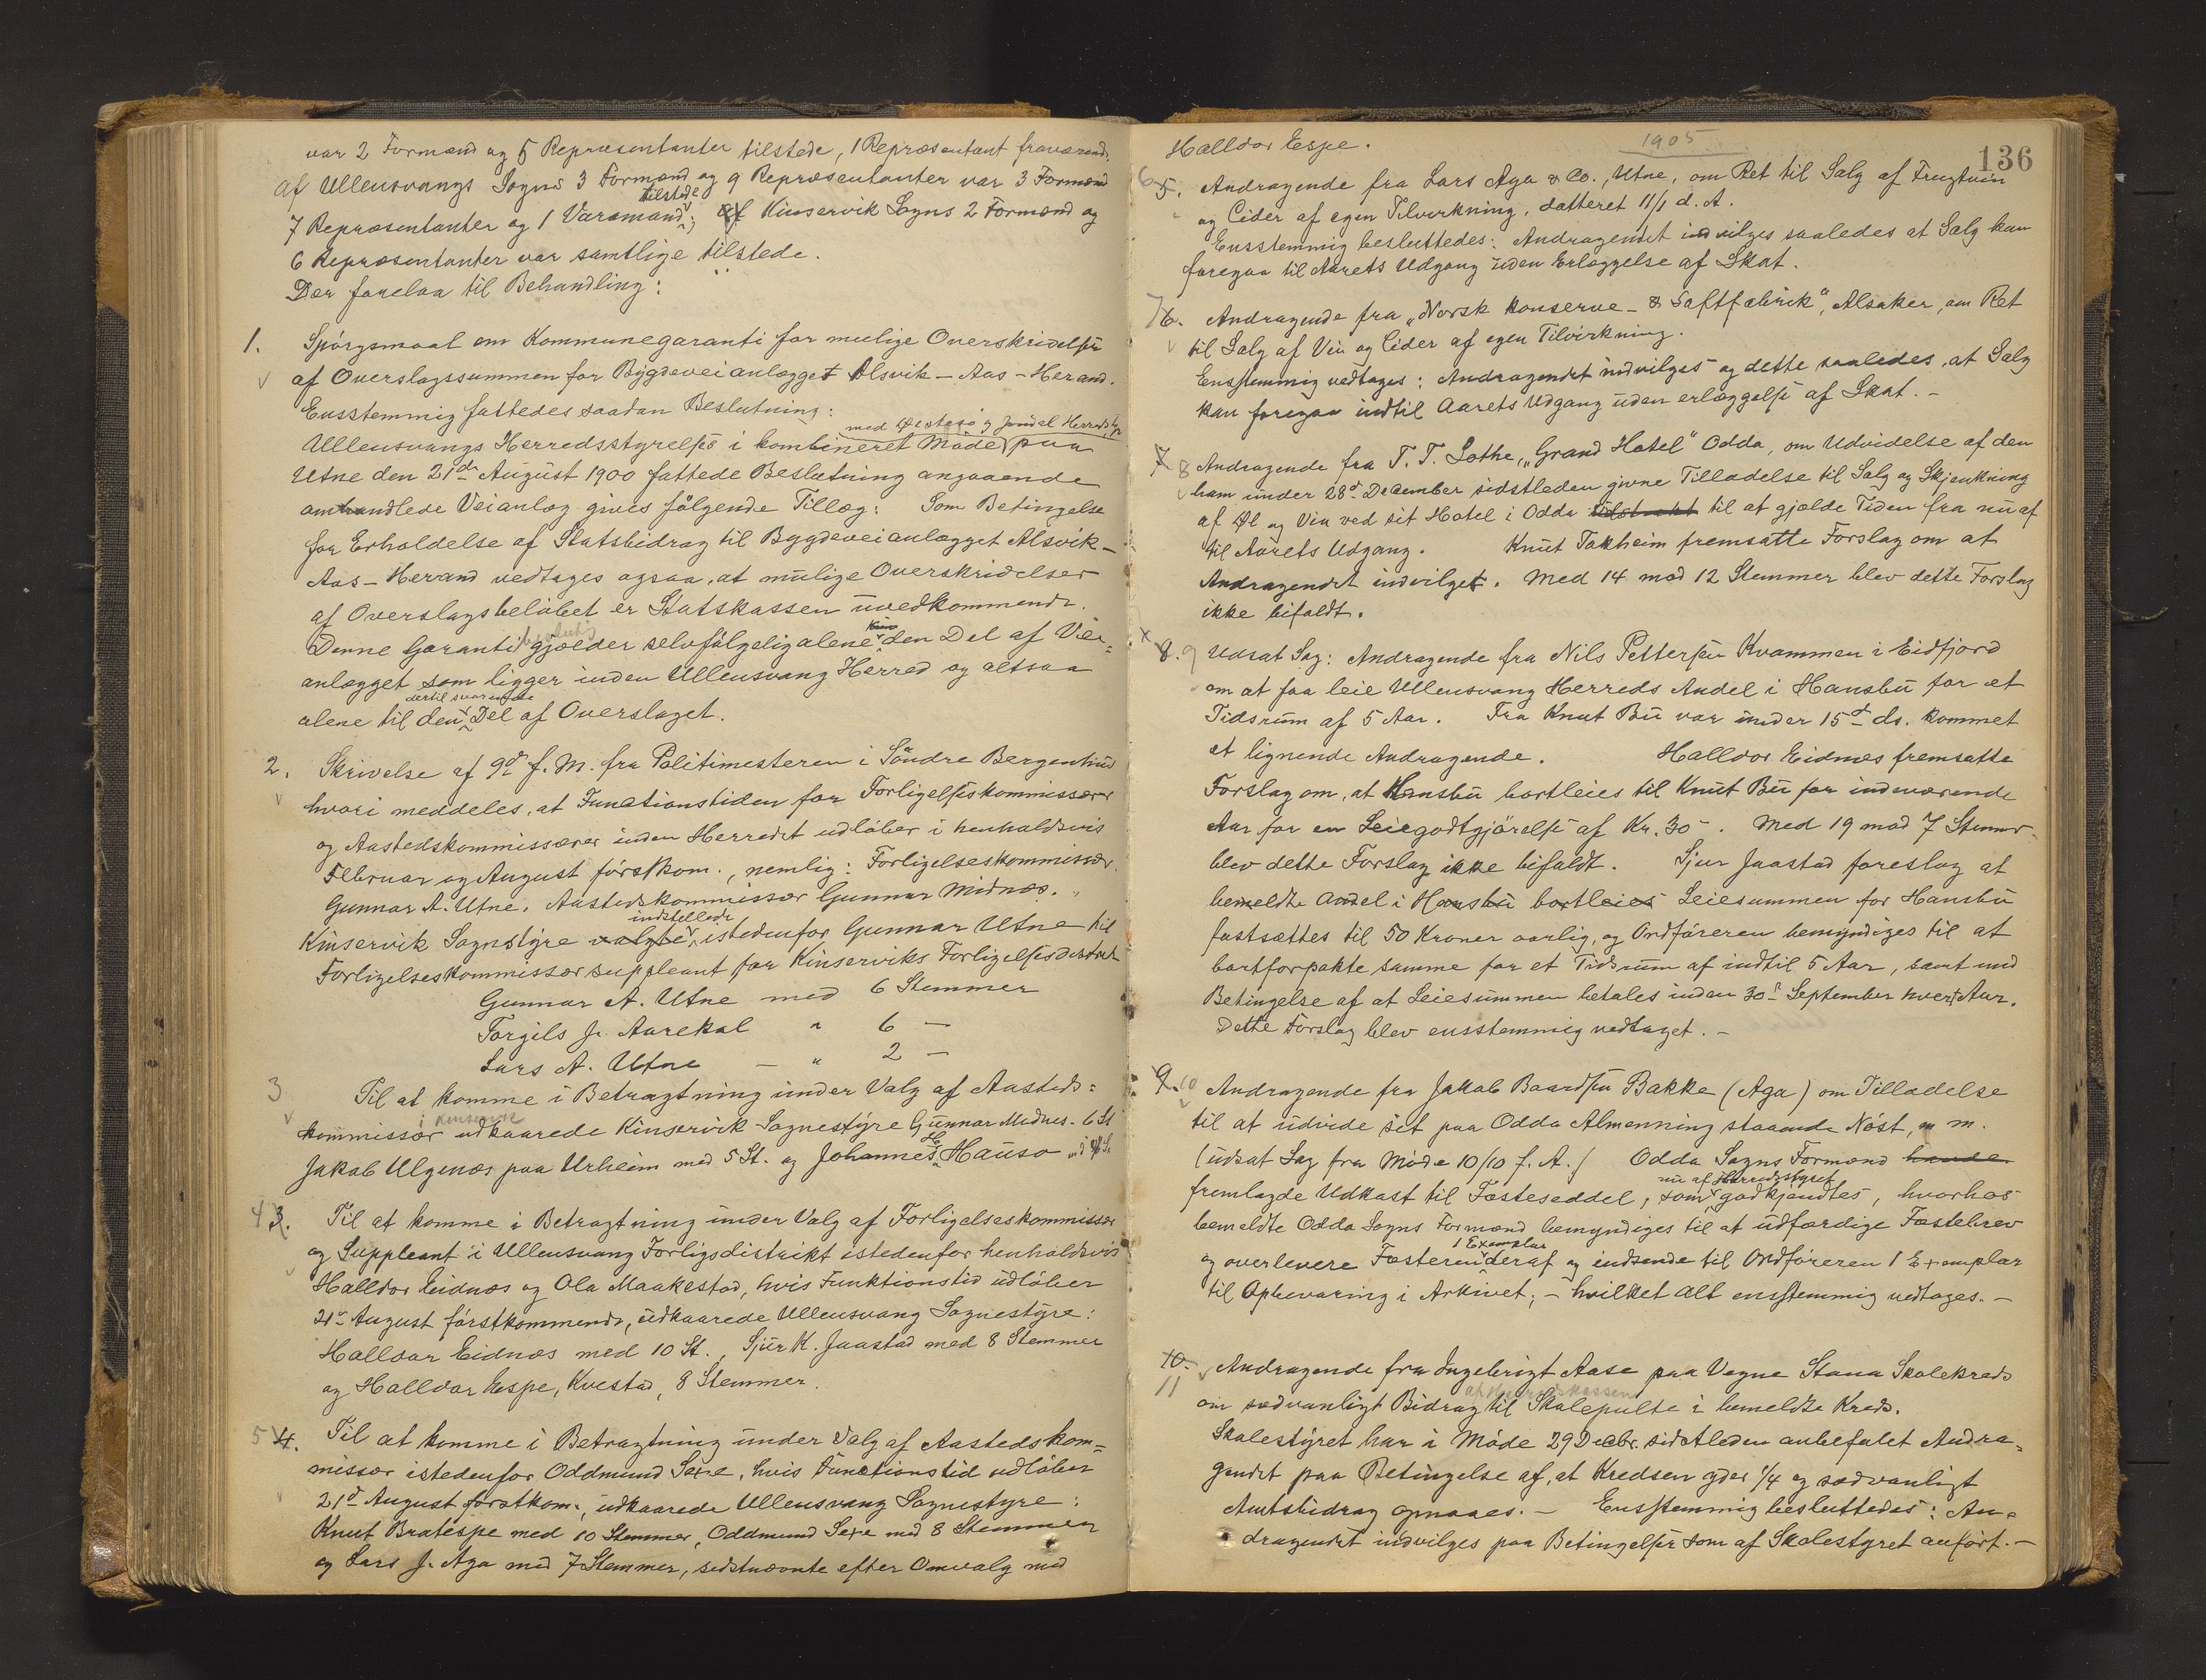 var 2 Formænd og 5 Repræsentanter tilstede, 1 Repræsentant fraværende,
af Ullensvangs Sogns 3 Formænd og 9 Repræsentanter var 3 Formænd
7 Repræsentanter og 1 Varamand tilstede; af Kinservik Sogns 2 Formænd og
6 Repræsentanter var samtlige tilstede.
Der forelaa til Behandling:
1. Spörgsmaal om Kommunegaranti for mulige Overskridelser
af Overslagssummen for Bygdeveianlægget Alsvik - Aas - Herand.
Eensstemmig fattedes saadan Beslutning:
med Østesø og Jondal Herredsstyr
Ullensvangs Herredsstyrelse i kombineret Möde paa
Utne den 21de August 1900 fattede Beslutning angaaende
omhandlede Veianlæg gives fölgende Tillæg: Som Betingelse
for Erholdelse af Statsbidrag til Bygdeveianlægget Alsvik -
Aas - Herand vedtages ogsaa, at mulige Overskridelser
af Overslagsbelöbet er Statskassen uvedkommende.
Denne Garanti gjælder selvfölgelig alene den Del af Vei-
anlægget som ligger inden Ullensvang Herred og altsaa
alene til den dertil svarende Del af Overslaget.
2. Skrivelse af 9de f. M. fra Politimesteren i Söndre Bergenhus
hvori meddeles, at Functionstiden for Forligelseskommissærer
og Aastedskommissærer inden Herredet udlöber i henholdsvis
Februar og August förstkom., nemlig: Forligelseskommissær
Gunnar A. Utne, Aastedskommissær Gunnar Midnæs.
Kinservik Sognstyre valgte indstillede istedenfor Gunnar Utne til
Forligelseskommissærsuppleant for Kinserviks Forligelsesdistrikt
Gunnar A. Utne med 6 Stemmer
Torgils J. Aarekol " 6 -
Lars A. Utne - " 2 -
3 Til at komme i Betragtning under Valg af Aasteds=
kommissær udkaarede Kinservik Sognestyre Gunnar Midnes - 6 St
Jakob Ulgenæs paa Urheim med 5 St. og Johannes Hauso
4 3. Til at komme i Betragtning under Valg af Forligelseskommissær
og Suppleant i Ullensvang Forligsdistrikt istedenfor henholdsvis
Halldor Eidnæs og Ola Maakestad, hvis Funktionstid udlöber
21de August förstkommende, udkaarede Ullensvang Sognestyre:
Halldor Eidnæs med 10 St., Sjur K. Jaastad med 8 Stemmer
og Halldor Espe, Kvestad, 8 Stemmer.
5 4. Til at komme i Betragtning under Valg af Aastedskom=
missær istedenfor Oddmund Sexe, hvis Functionstid udlöber
21de August förstkom., udkaarede Ullensvang Sognestyre:
Knut Bratespe med 10 Stemmer, Oddmund Sexe med 8 Stemmer
og Lars J. Aga med 7 Stemmer, sidstnævnte efter Omvalg med
Halldor Espe.
1905
136
6 5. Andragende fra Lars Aga & Co., Utne, om Ret til Salg af Frugtvin
og Cider af egen Tilvirkning, datteret 11/1 d. A.
Eensstemmig besluttedes: Andragendet indvilges saaledes at Salg kan
foregaa til Aarets Udgang uden Erlæggelse af Skat.
7 6. Andragende fra „Norsk Konserve- & Saftfabrik", Alsaker, om Ret
til Salg af Vin og Cider af egen Tilvirkning.
Eensstemmig vedtoges: Andragendet indvilges og dette saaledes, at Salg
kan foregaa indtil Aarets Udgang uden erlæggelse af Skat. -
7 8 Andragende fra T. T. Lothe, „Grand Hotel" Odda, om Udvidelse af den
ham under 28de December sidstleden givne Tilladelse til Salg og Skjenkning
af Øl og Vin ved sit Hotel i Odda til at gjælde Tiden fra nu af
til Aarets Udgang. Knut Tokheim fremsatte Forslag om at
Andragendet indvilget. Med 14 mod 12 Stemmer blev dette Forslag
ikke bifaldt.
8. 9 Udsat Sag: Andragende fra Nils Pettersen Kvammen i Eidfjord
om at faa leie Ullensvang Herreds Andel i Hansbu for et
Tidsrum af 5 Aar. Fra Knut Bu var under 15de ds. kommet
et lignende Andragende. Halldor Eidnæs fremsatte
Forslag om, at Hansbu bortleies til Knut Bu for indeværende
Aar for en Leiegodtgjörelse af Kr. 30 -. Med 19 mod 7 Stemmer
blev dette Forslag ikke bifaldt. Sjur Jaastad foreslog at
bemeldte Andel i Hansbu bortleies Leiesummen for Hansbu
fastsættes til 50 Kroner aarlig, og Ordföreren bemyndiges til at
bortforpakte samme for et Tidsrum af indtil 5 Aar, samt med
Betingelse af at Leiesummen betales inden 30te September hvert Aar.
Dette Forslag blev eensstemmig vedtaget. -
9. 10 Andragende fra Jakob Baardsen Bakke (Aga) om Tilladelse
til at udvide sit paa Odda Almenning staaende Nöst, m. m.
(udsat Sag fra Möde 10/10 f. A.) Odda Sogns Formænd havde
fremlagde Udkast til Fæsteseddel, som nu af Herredsstyret godkjendtes, hvorhos
bemeldte Odda Sogns Formænd bemyndiges til at udfærdige Fæstebrev
og overlevere Fæsteren 1 Exemplar deraf og indsende til Ordföreren 1 Exemplar
til Opbevaring i Arkivet; - hvilket alt eensstemmig vedtoges. -
10. 11 Andragende fra Ingebrigt Aase paa Vegne Stana Skolekreds
om sædvanligt Bidrag af Herredskassen til Skolepulte i bemeldte Kreds.
Skolestyret har i Möde 29 Decbr. sidstleden anbefalet Andra=
gendet paa Betingelse af, at Kredsen yder 1/4 og sædvanligt
Amtsbidrag opnaaes. - Eensstemmig besluttedes: An=
dragendet indvilges paa Betingelser som af Skolestyret anfört. -